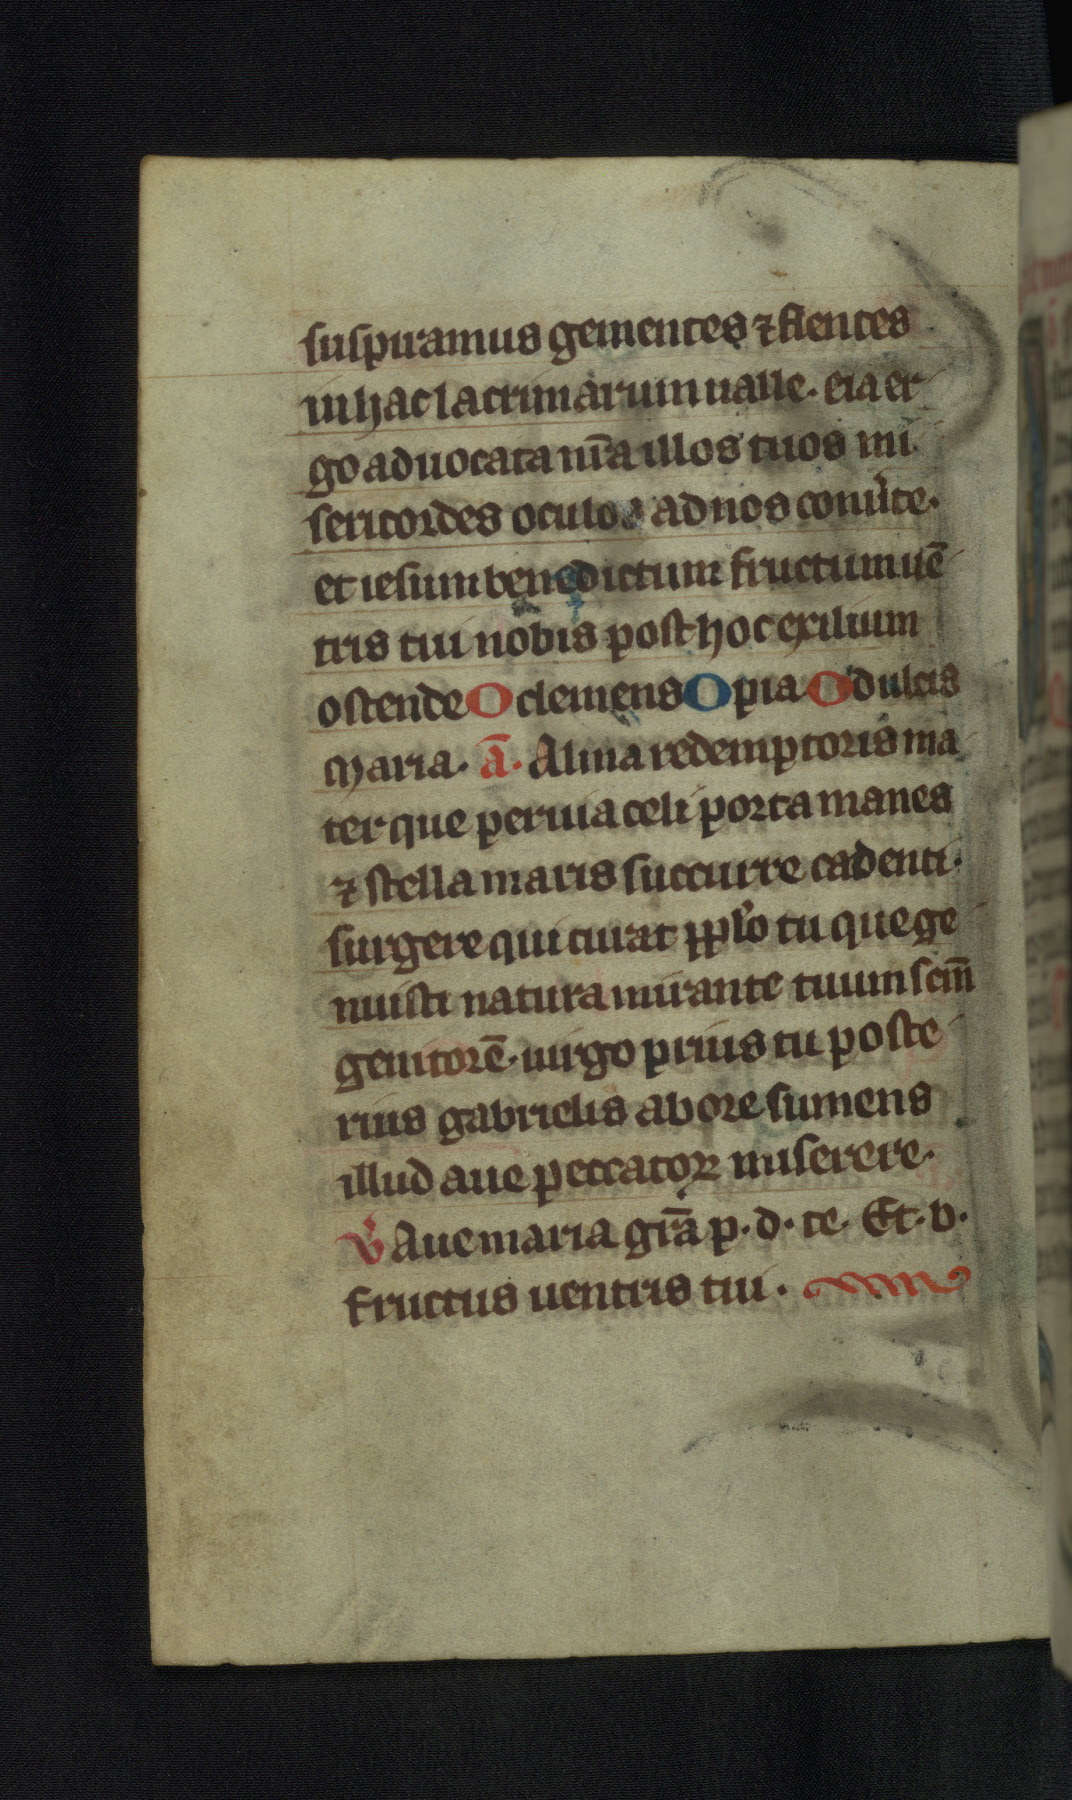 suspiramus gementes ⁊ flentes
in hac lacrimarum ualle. eia er
go aduocata nr̄a illos tuos mi
sericordes oculos ad nos conuˀte.
et iesum benedictum fructum uē
tris tui nobis post hoc exilium
ostende O clemens O pia O dulcis
maria. ā. Alma redemptoris ma
ter que peruia celi porta manes
⁊ stella maris succurre cadenti.
surgere qui curat pplo tu que ge
nuisti natura mirante tuum scm̄
genitorē. uirgo prius tu poste
rius gabrielis ab ore sumens
illud aue peccatoꝝ miserere.
V Aue maria gr̄a p. d. te. Et. b.
fructus uentris tui.